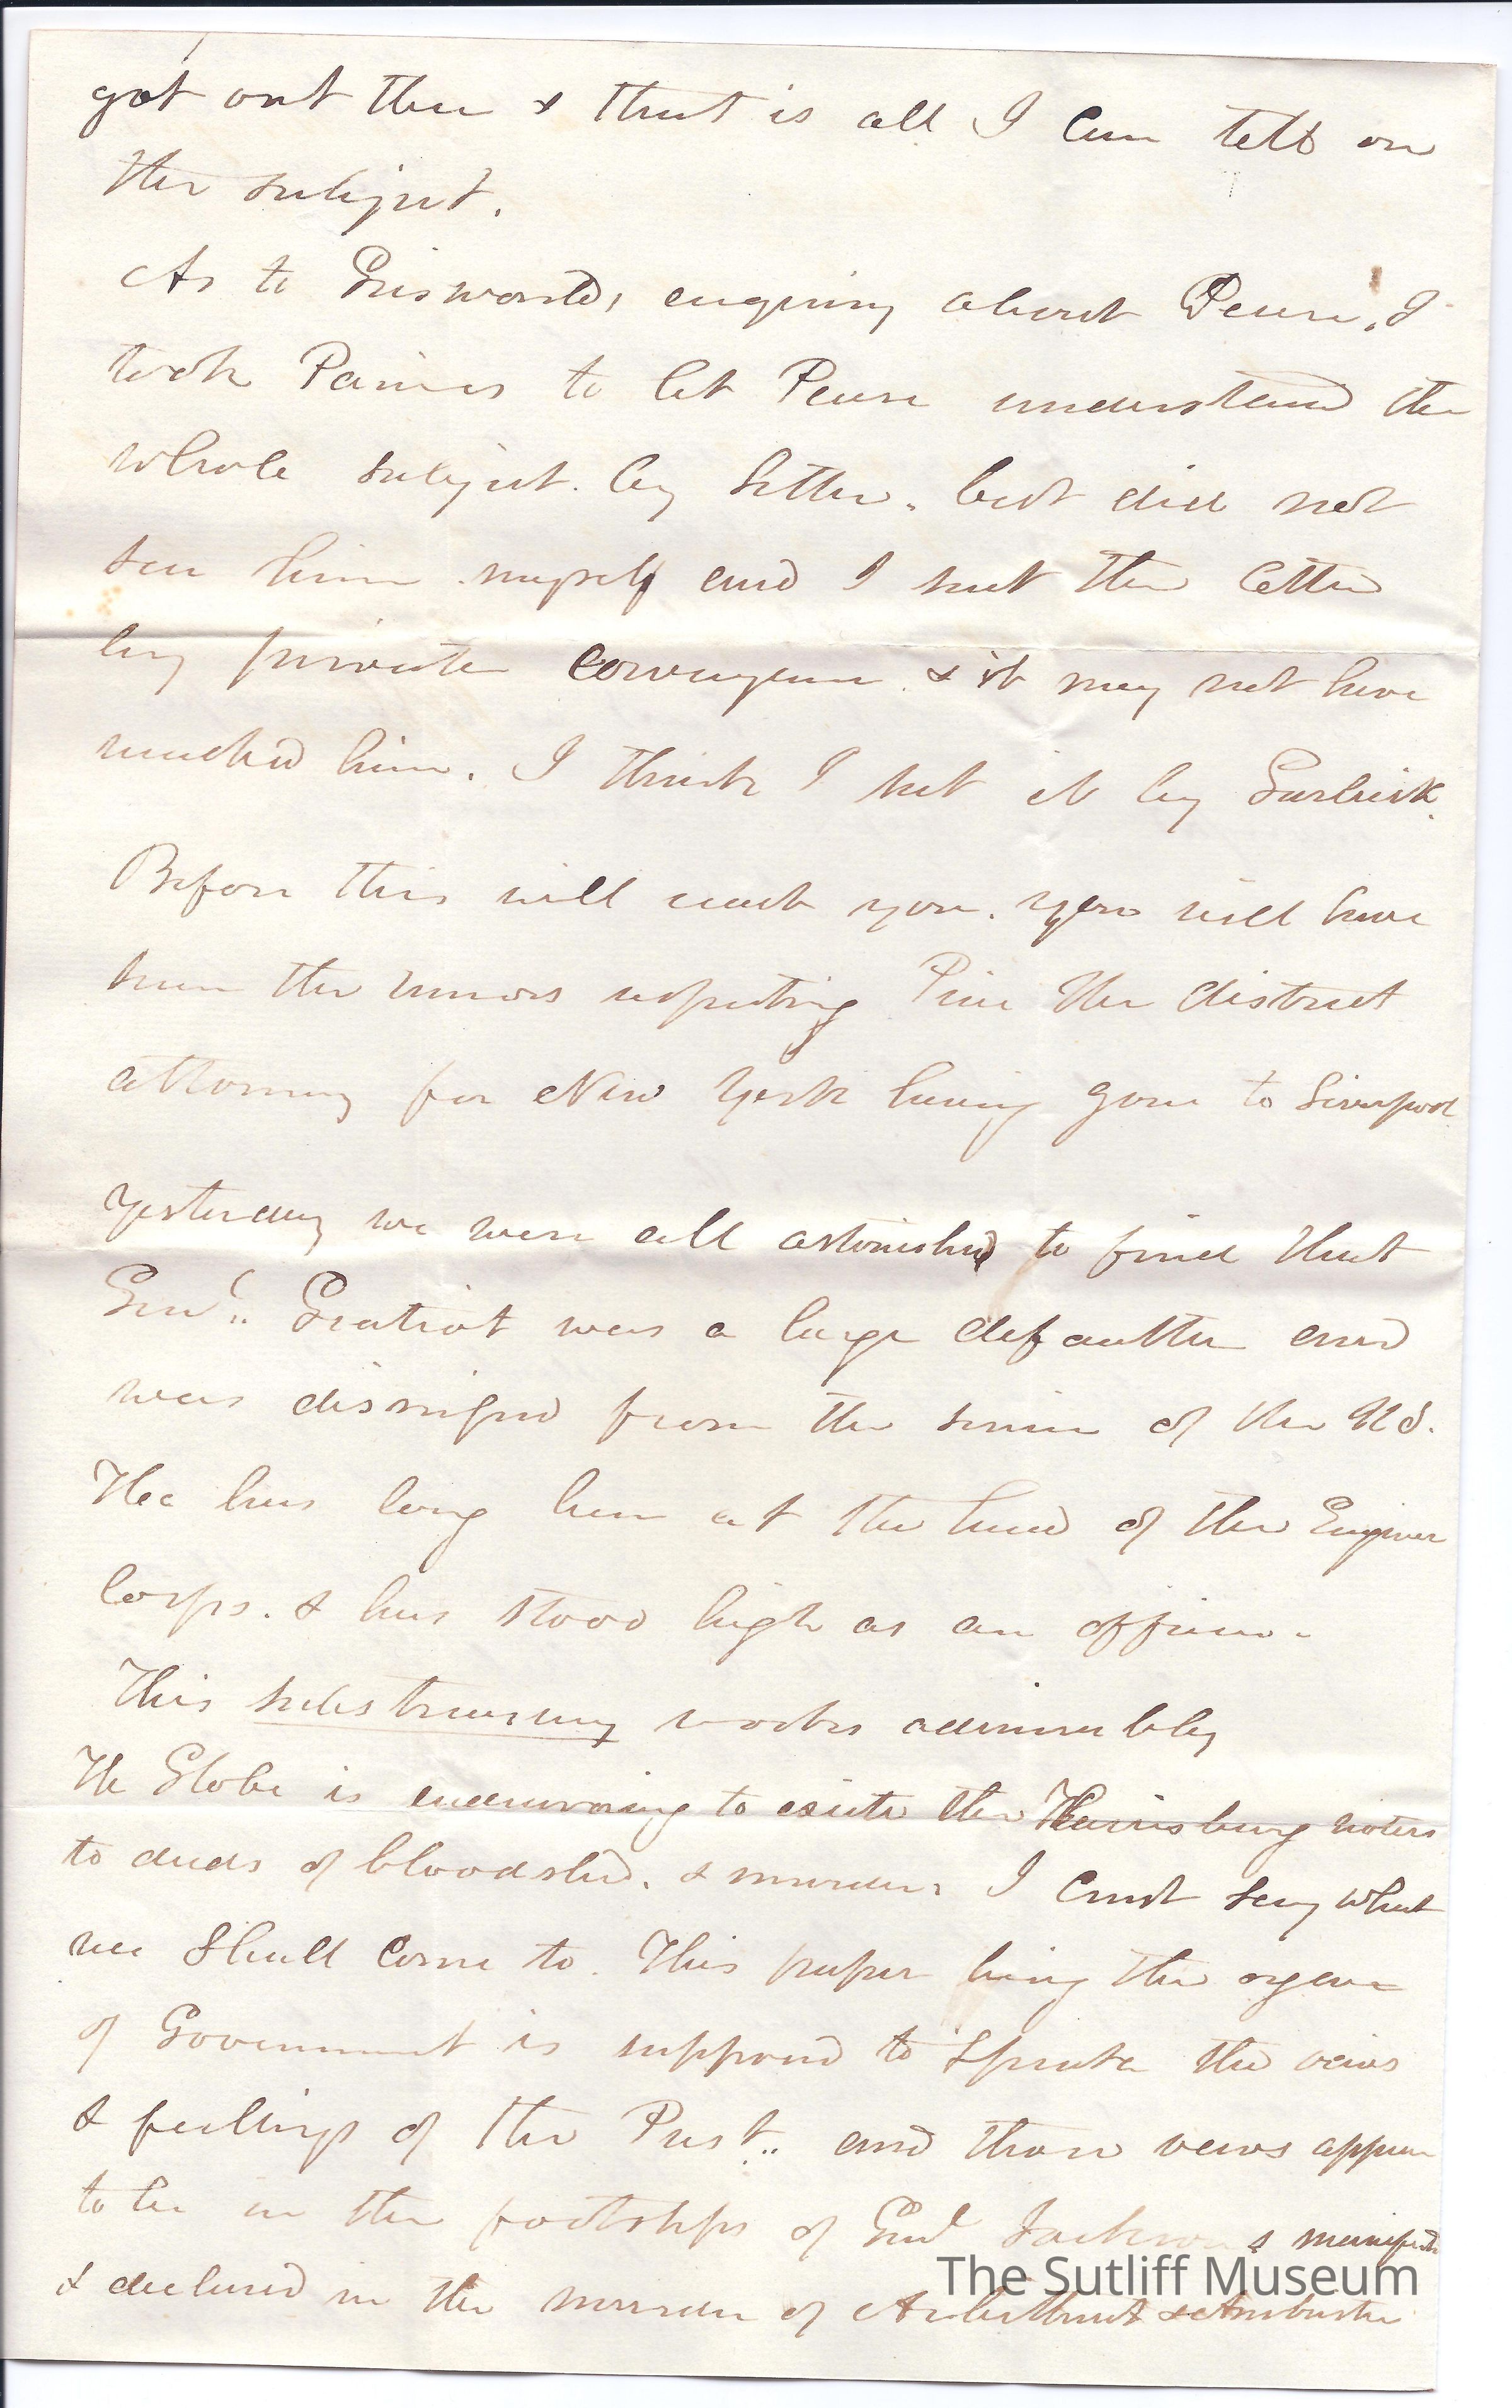 got out there & that is all I can tell on
the subject.
As to Griswold, enquiring about Pease, I
took Paines to let Pease understand the
whole subject. by letter. but did not
see him myself and I sent the letter
by private conveyance & it may not have
reached him. I think I sent it by
Before this will reach you. you will have
seen the rumors respecting Price the district
attorney for New York having gone to Liverpool
Yesterday we were all astonished to find that
Genl. Gratiot was a large defaulter and
was dismissed from the service of the U S.
He has long been at the head of the Engineer
Corps. & has stood high as an officer.
This subtreasury works admirably
The Globe is endeavoring to excite the Harrisburg rioters
to deeds of bloodshed. & murder. I cant say what
we shall come to. This paper being the organ
of Government is supposed to speak the veiws
& feelings of the Prest. and those veiws appear
to be in the footsteps of Genl Jackson & manifested
& declared in the murder of Arbuthnot & Ambrister
The Sutliff Museum